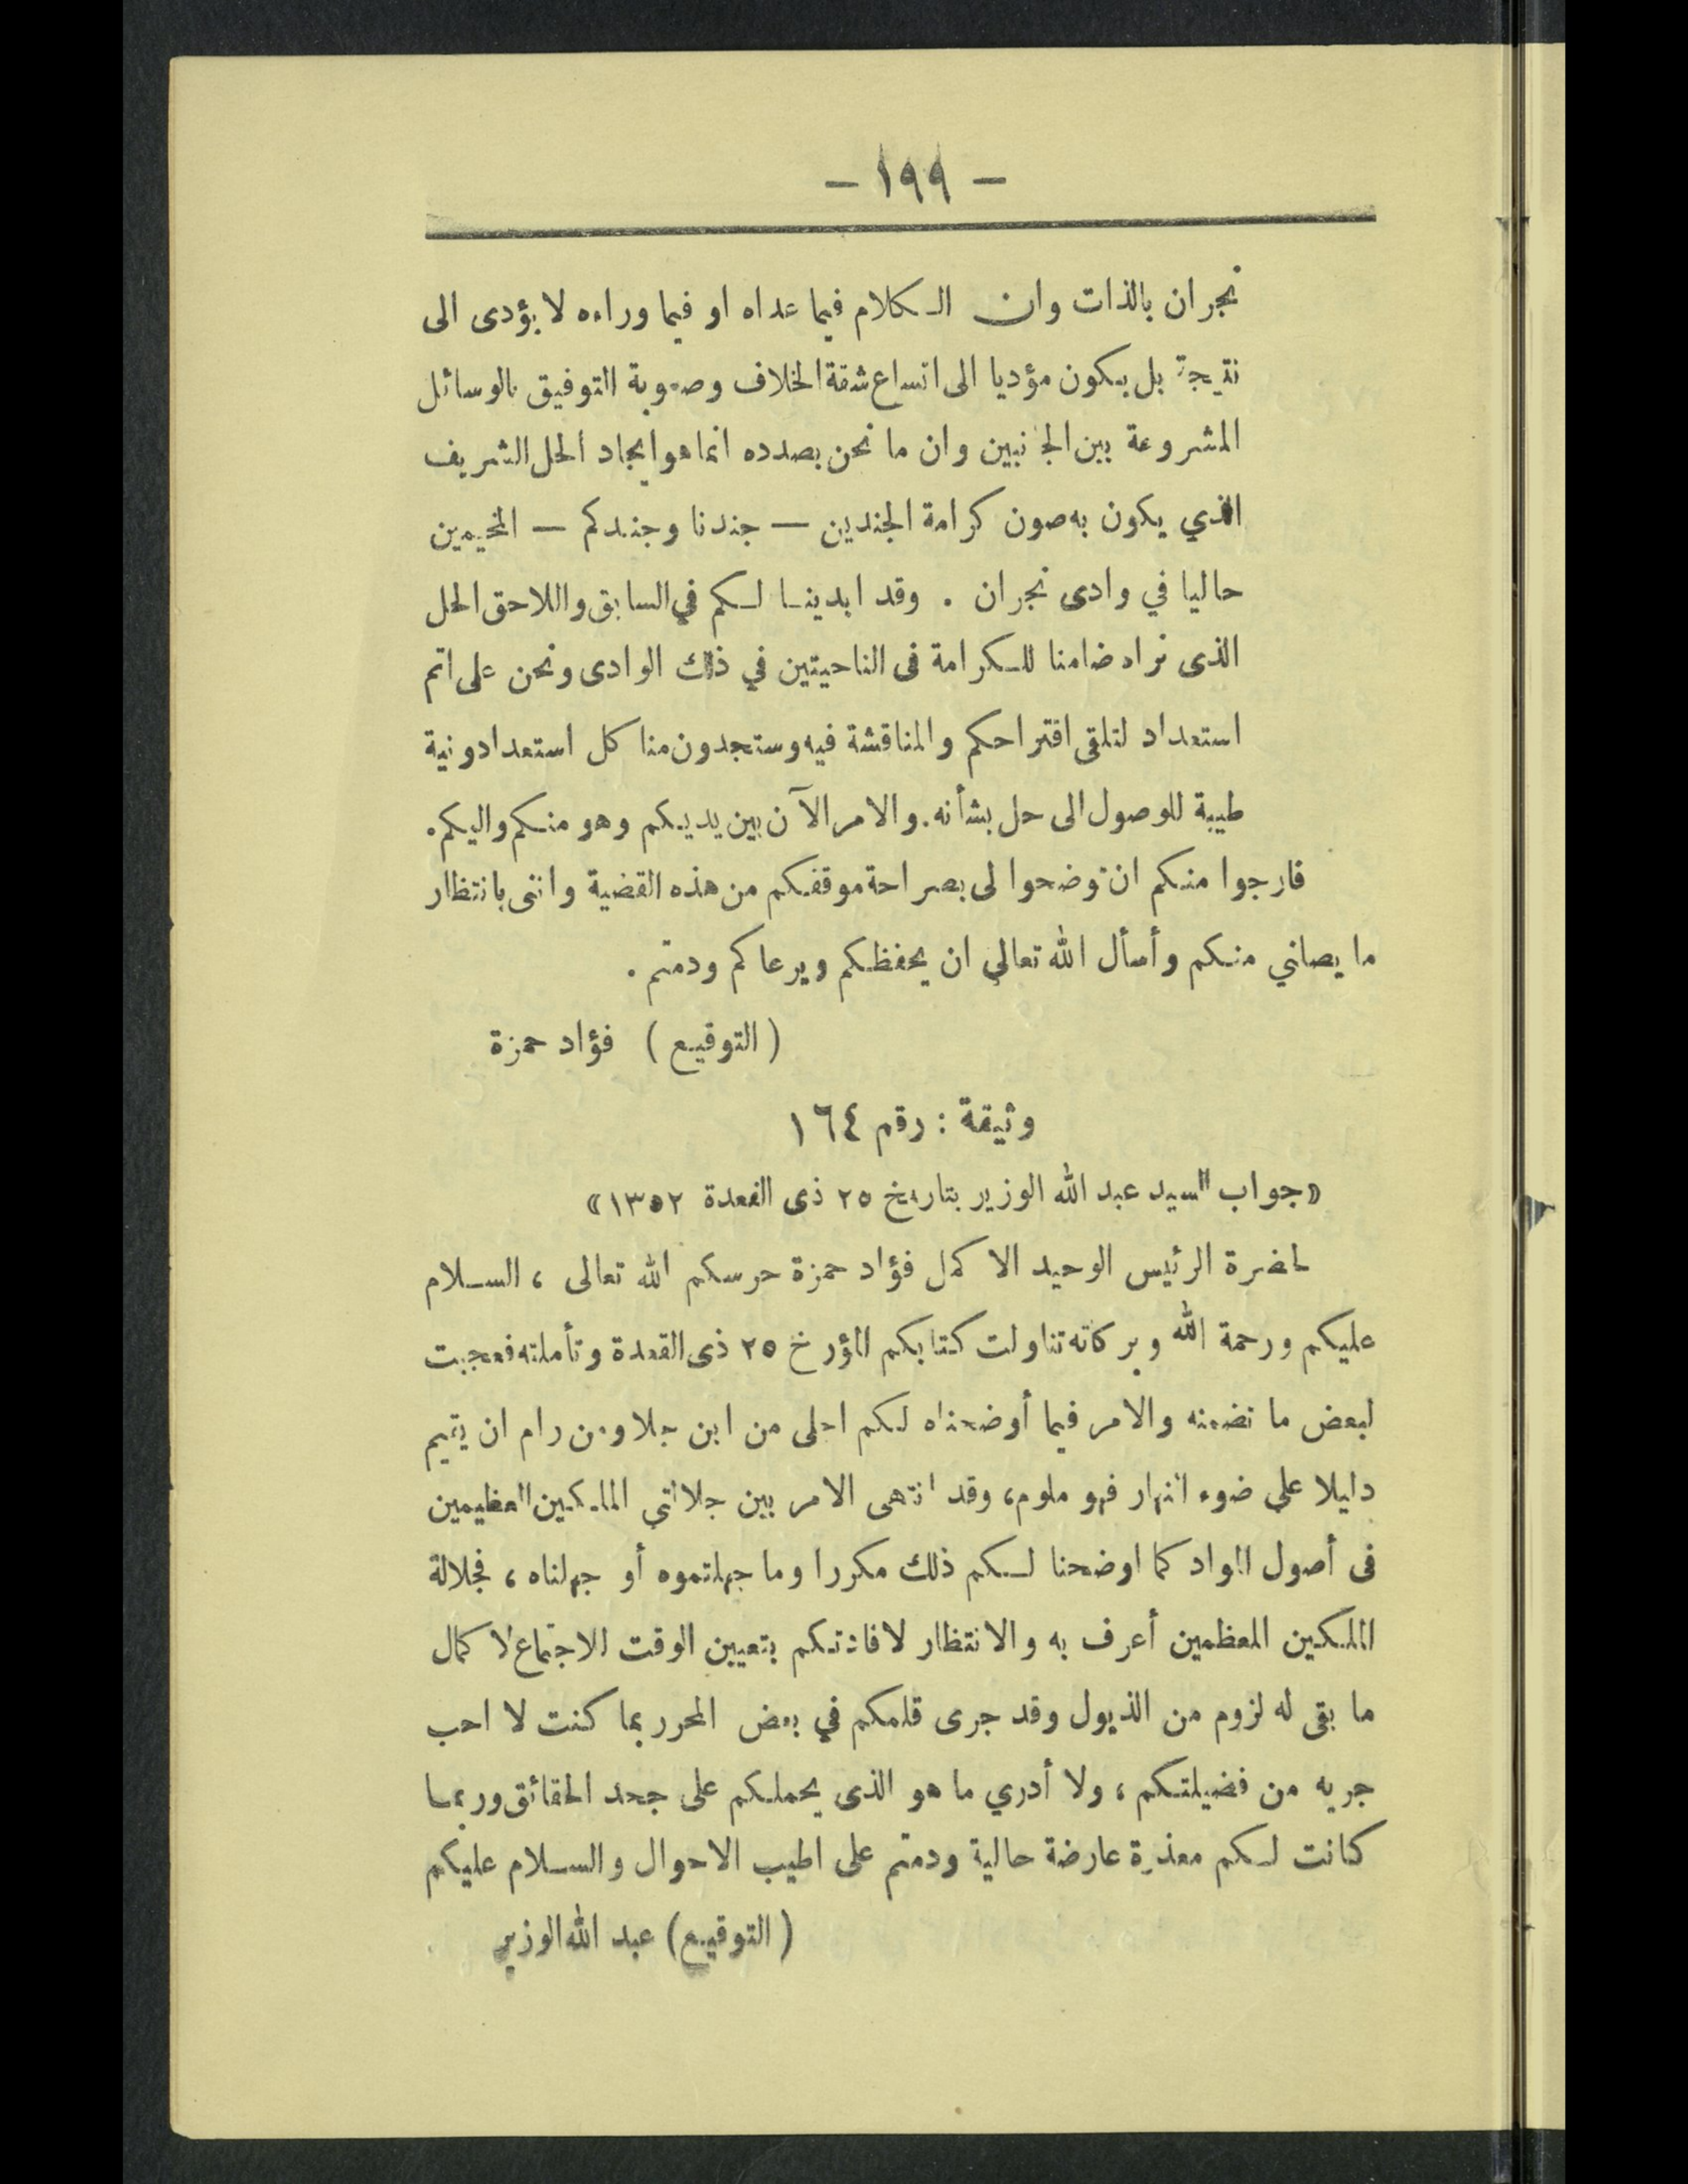 – ١٩٩ –
نجران بالذات وان الكلام فيما عداه او فيما وراءه لا يؤدى الى
نتيجة بل يكون مؤديا الى اتساع شقة الخلاف وصعوبة التوفيق بالوسائل
المشروعة بين الجانبين وان ما نحن بصدده انما هو ايجاد الحل الشريف
الذي يكون به صون كرامة الجندين — جندنا وجندكم — المخيمين
حاليا في وادى نجران . وقد ابدينا لكم في السابق واللاحق الحل
الذى نراه ضامنا للكرامة فى الناحيتين في ذلك الوادى ونحن على اتم
استعداد لتلقى اقتراحكم والمناقشة فيه وستجدون منا كل استعداد ونية
طيبة للوصول الى حل بشأنه. والامر الآن بين يديكم وهو منكم واليكم.
فارجوا منكم ان توضحوا لى بصراحة موقفكم من هذه القضية واننى بانتظار
ما يصلني منكم وأسأل الله تعالى ان يحفظكم ويرعاكم ودمتم .
( التوقيع ) فؤاد حمزة
وثيقة : رقم ١٦٤
«جواب السيد عبد الله الوزير بتاريخ ٢٥ ذى القعدة ١٣٥٢»
لحضرة الرئيس الوحيد الاكمل فؤاد حمزة حرسكم الله تعالى ، السلام
عليكم ورحمة الله وبركاته تناولت كتابكم المؤرخ ٢٥ ذى القعدة وتأملته فعجبت
لبعض ما تضمنه والامر فيما أوضحناه لكم اجلى من ابن جلا ومن رام ان يقيم
دليلا على ضوء النهار فهو ملوم، وقد انتهى الامر بين جلالتي الملكين العظيمين
فى أصول المواد كما اوضحنا لكم ذلك مكررا وما جهلتموه أو جهلناه ، فجلالة
الملكين المعظمين أعرف به والانتظار لافادتكم بتعيين الوقت للاجتماع لاكمال
ما بقى له لزوم من الذيول وقد جرى قلمكم في بعض المحرر بما كنت لا احب
جريه من فضيلتكم ، ولا أدري ما هو الذى يحملكم على جحد الحقائق وربما
كانت لكم معذرة عارضة حالية ودمتم على اطيب الاحوال والسلام عليكم
( التوقيع ) عبد الله الوزير